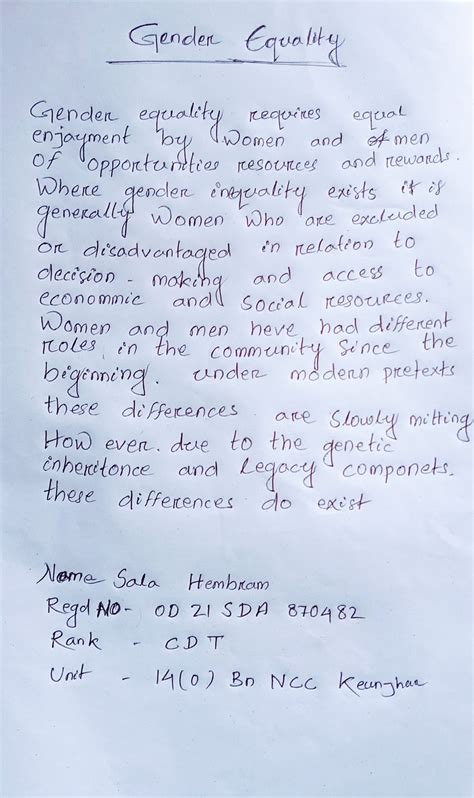 Gender Equality
Gender equality requires equal
enjayment by Women and of men
Of opportunities resources and rewards.
Where gender inequality exists it is
generally Women Who are excluded
or disadvantaged in relation to
decision - making and access to
econommic and Social resources.
Women and men heve had different
roles in the community Since the
biginning. under modern pretexts
these differences are Slowly mitting
How ever. due to the genetic
inheritonce and Legacy componets.
these differences do exist
Name Sala Hembram
Regd NO- OD 21 SDA 870482
Rank - CDT
Unit - 14(0) Bn NCC Keunghar